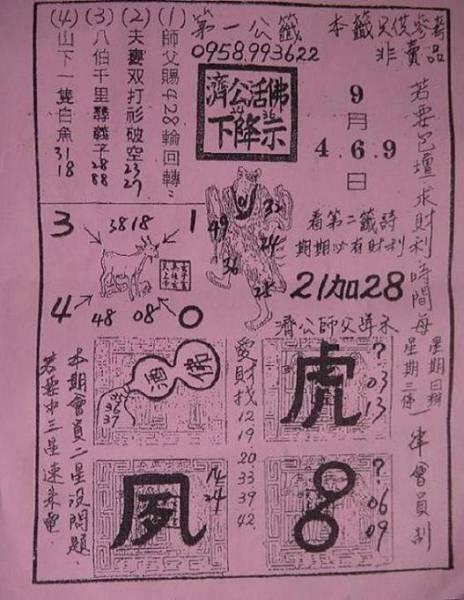 第一公籤
0958993622
本籤只供參考
非賣品
(1)師父賜428輪回轉
(2)夫妻双打衫破空 23 27
(3)八伯千里尋義子 28 88
(4)山下一隻白魚 31 18
濟公活佛
降示
下
9
月
4.6.9
日
若要巴壇求財利時間每
星期日和
星期三停
一律會員制
看第二籤詩
期期必有財利
21加28
濟公師父降示
3
3818
1
4
48
08
0
49
32
24
36
25
佛
酒
35
36
37
愛財找
12
19
20
33
39
42
虎
?
03
13
夙
14
24
8
?
06
09
本期會員二星沒問題
若要求三星速來電